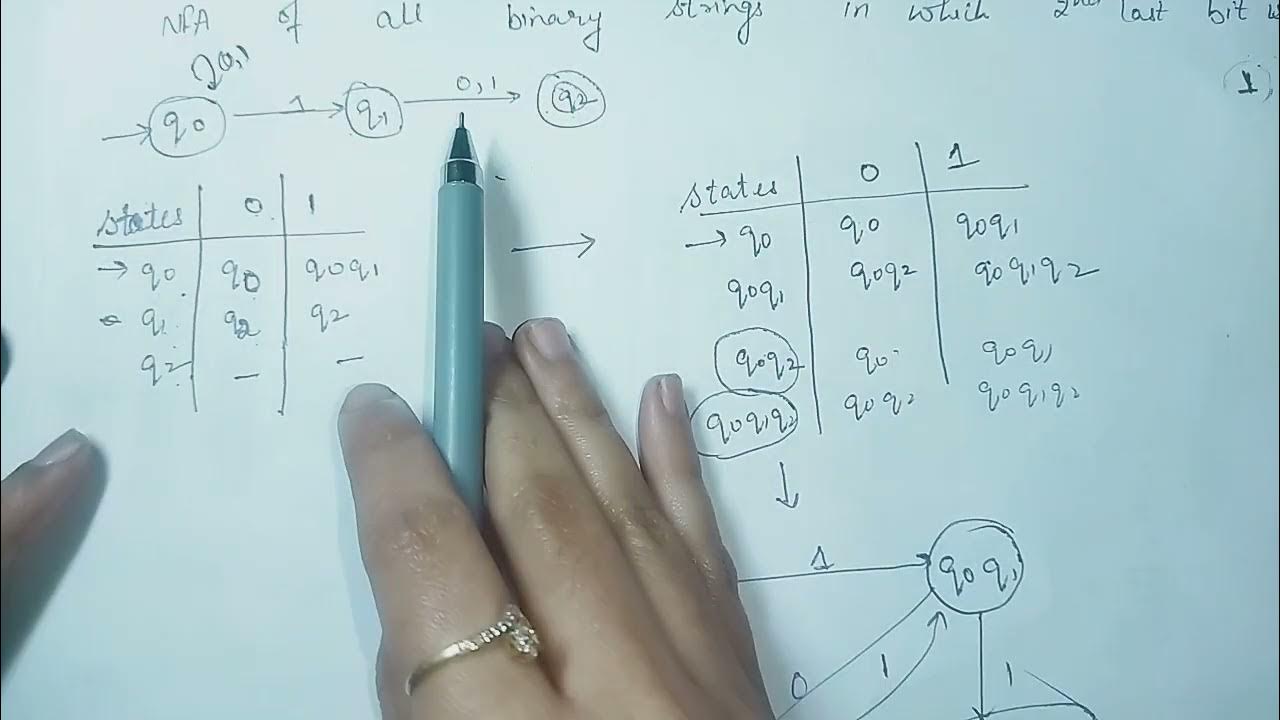 NFA of all binary strings in which 2nd last bit is
1
0,1
→ q0 1 q1 0,1 q2
states 0 1
→ q0 q0 q0q1
q1 q2 q2
q2 — —
states 0 1
→ q0 q0 q0q1
q0q1 q0q2 q0q1q2
q0q2 q0 q0q1
q0q1q2 q0q2 q0q1q2
1 q0q1
0 1 1